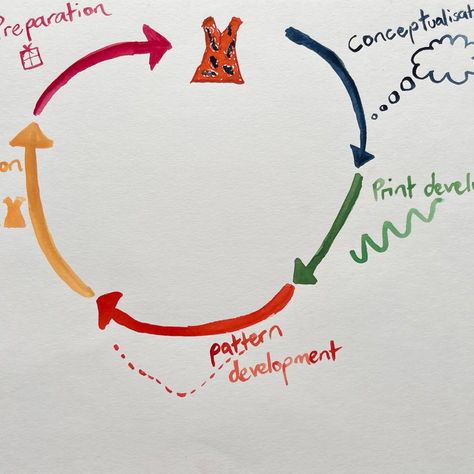 Preparation
conceptualisat
Print develo
on
pattern
development